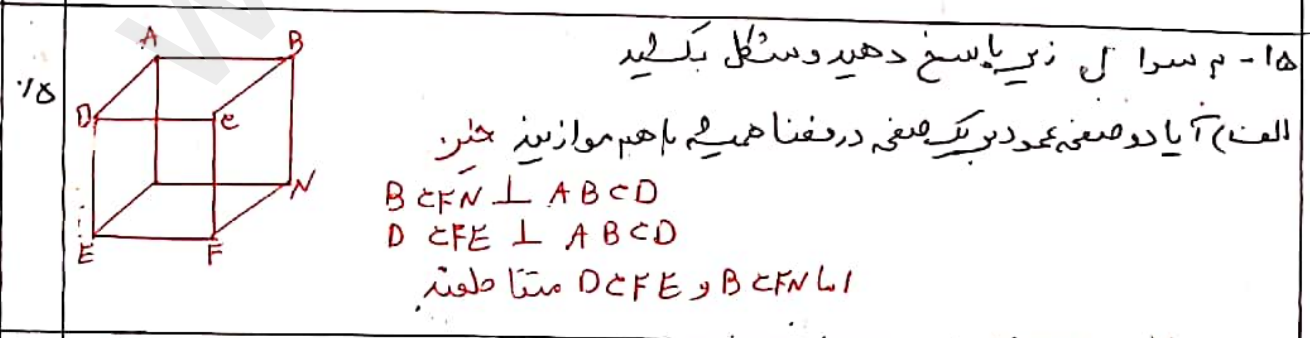 ۱۵- به سوال زیر پاسخ دهید و شکل بکشید
الف) آیا دو صفحه عمود بر یک صفحه در فضا همیشه با هم موازیند خیر
BCFN ⊥ ABCD
DCFE ⊥ ABCD
اما BCFN و DCFE متقاطعند
۰/۵
A B
D C
N
E F